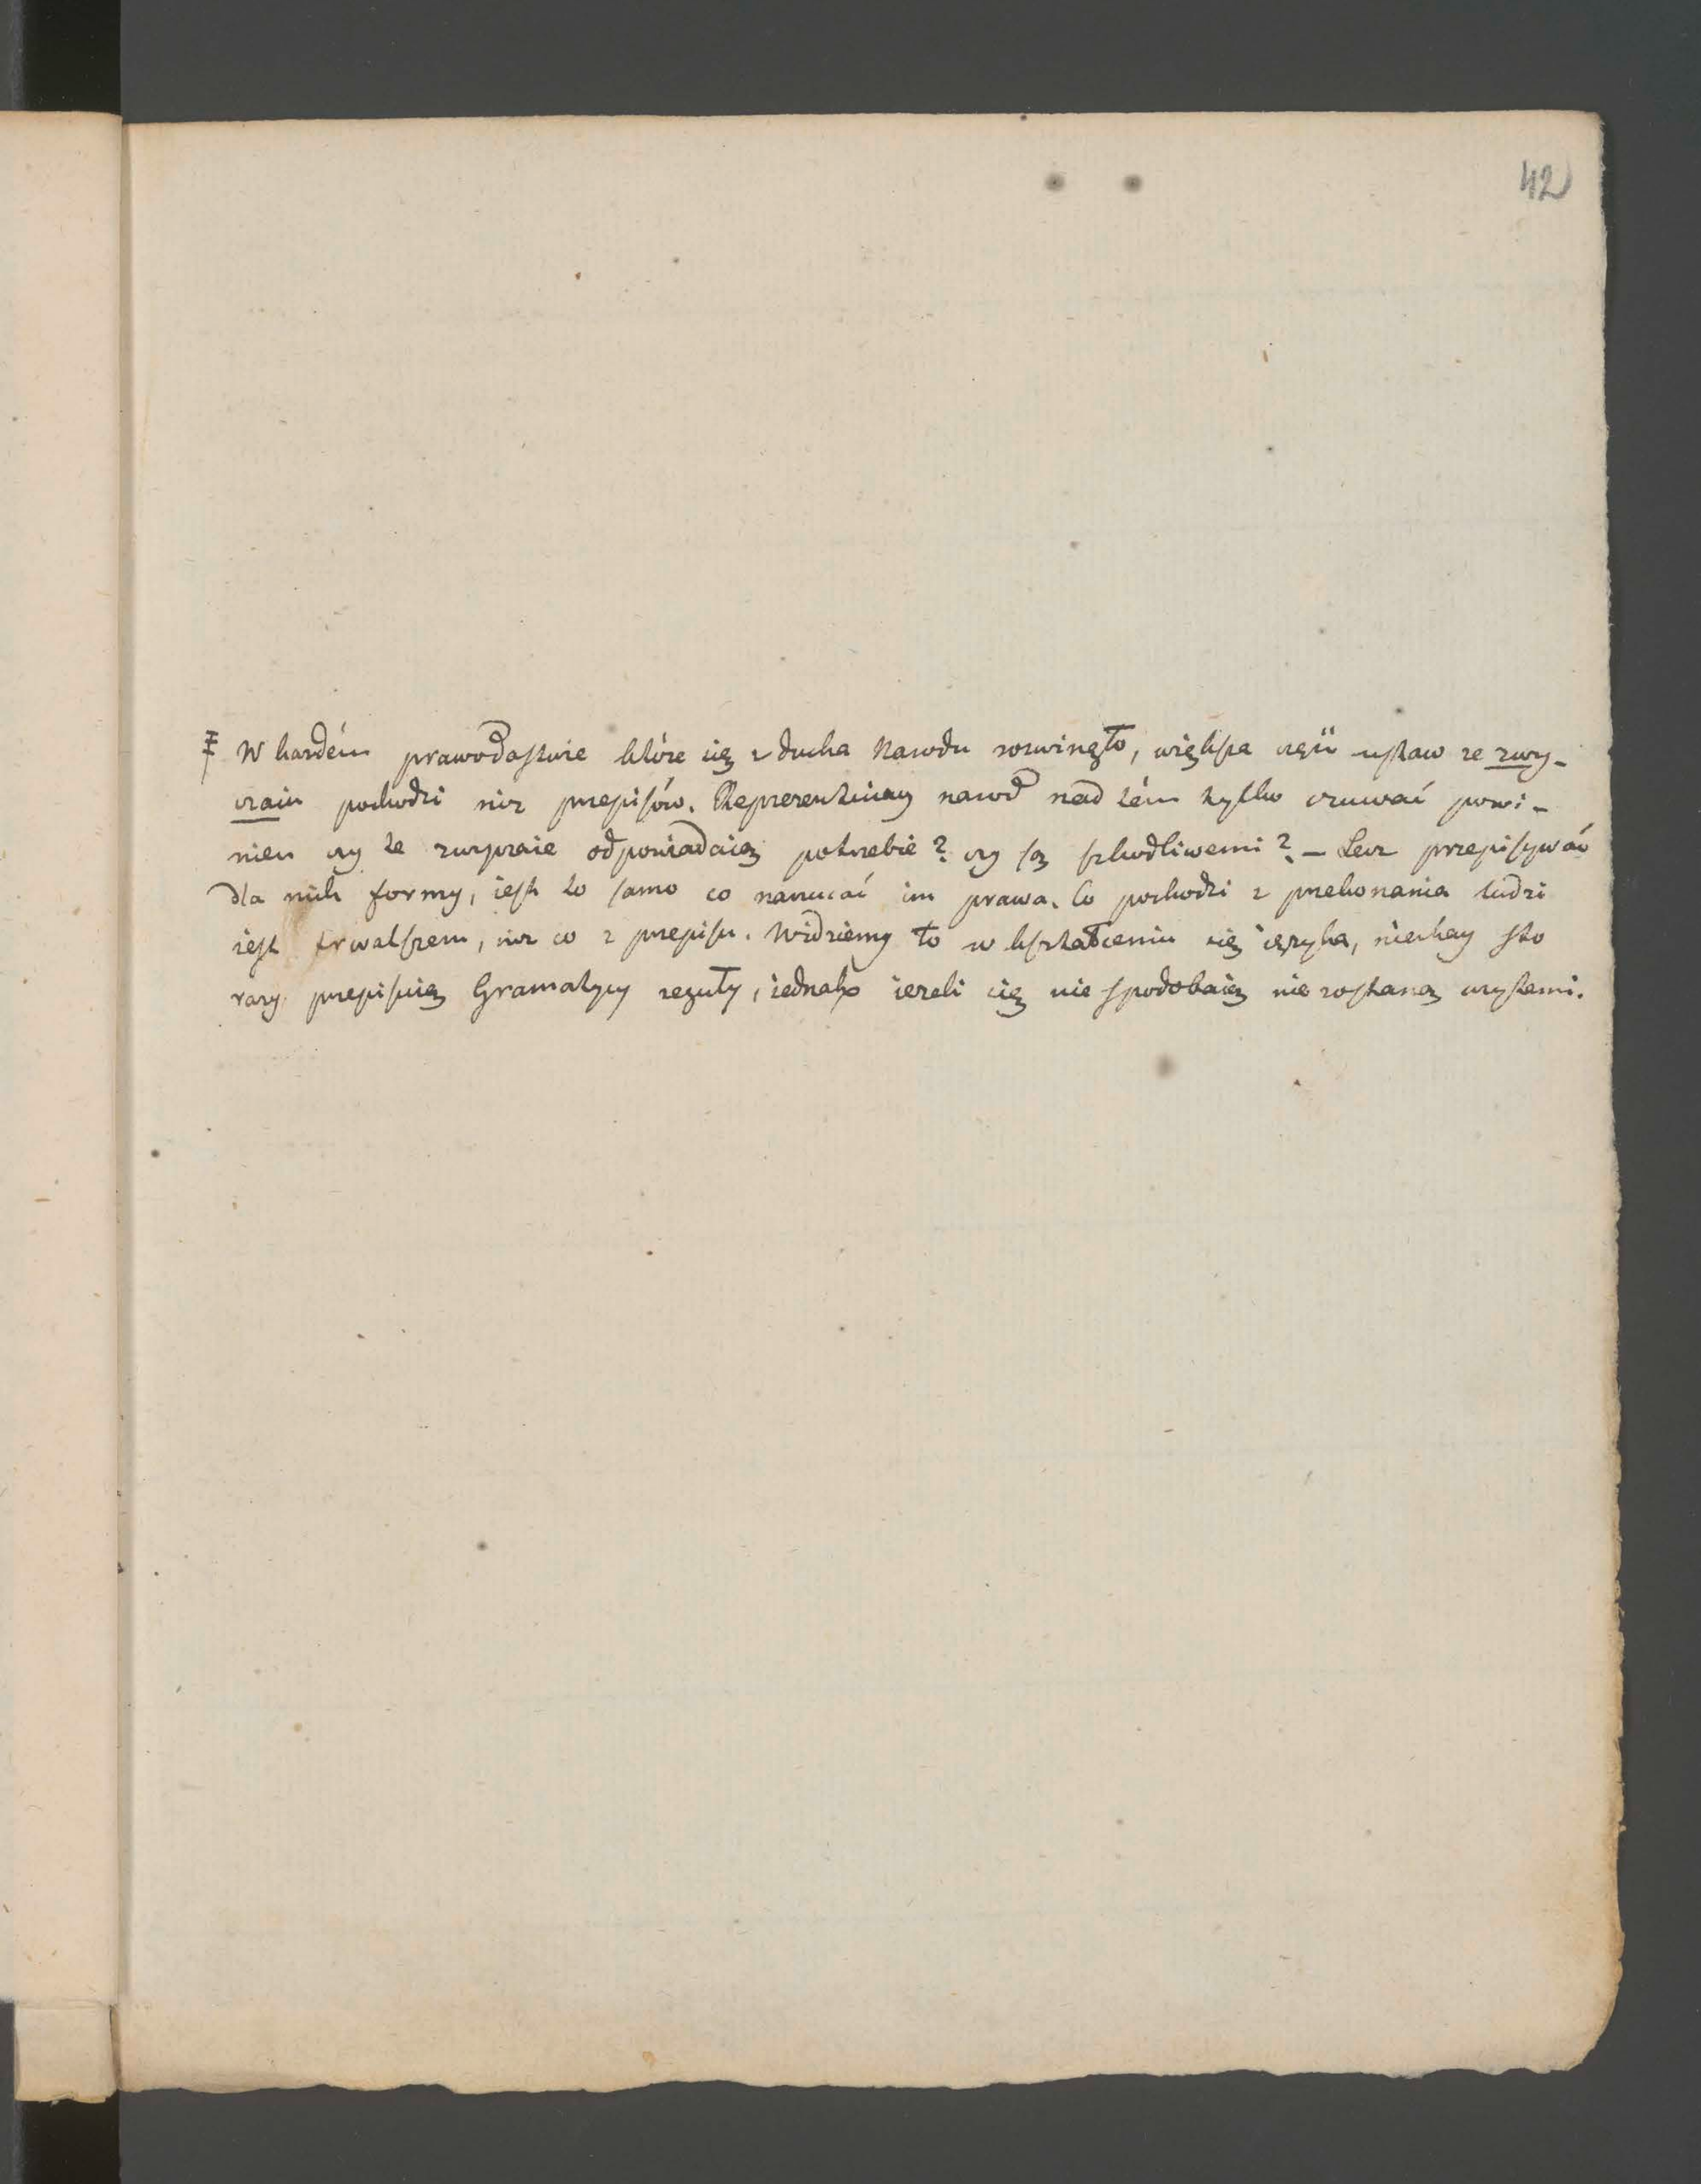 42
‡ W każdém prawodastwie które się z ducha Narodu rozwinęło, większa część ustaw ze zwy-
czaiu pochodzi niż przepisów. Reprezentuiący narod nad tém tylko czuwać powi-
nien czy te zwyczaie odpowiadaią potrzebie? czy są szkodliwemi? – Lecz przepisywać
dla nich formy, iest to samo co narzucać im prawa. Co pochodzi z przekonania ludzi
iest trwalszem, niż co z przepisu. Widziemy to w kształceniu się ięzyka, niechay sto
razy przepisuią Gramatycy reguły, iednak ieżeli się nie spodobaią nie zostaną czystemi.